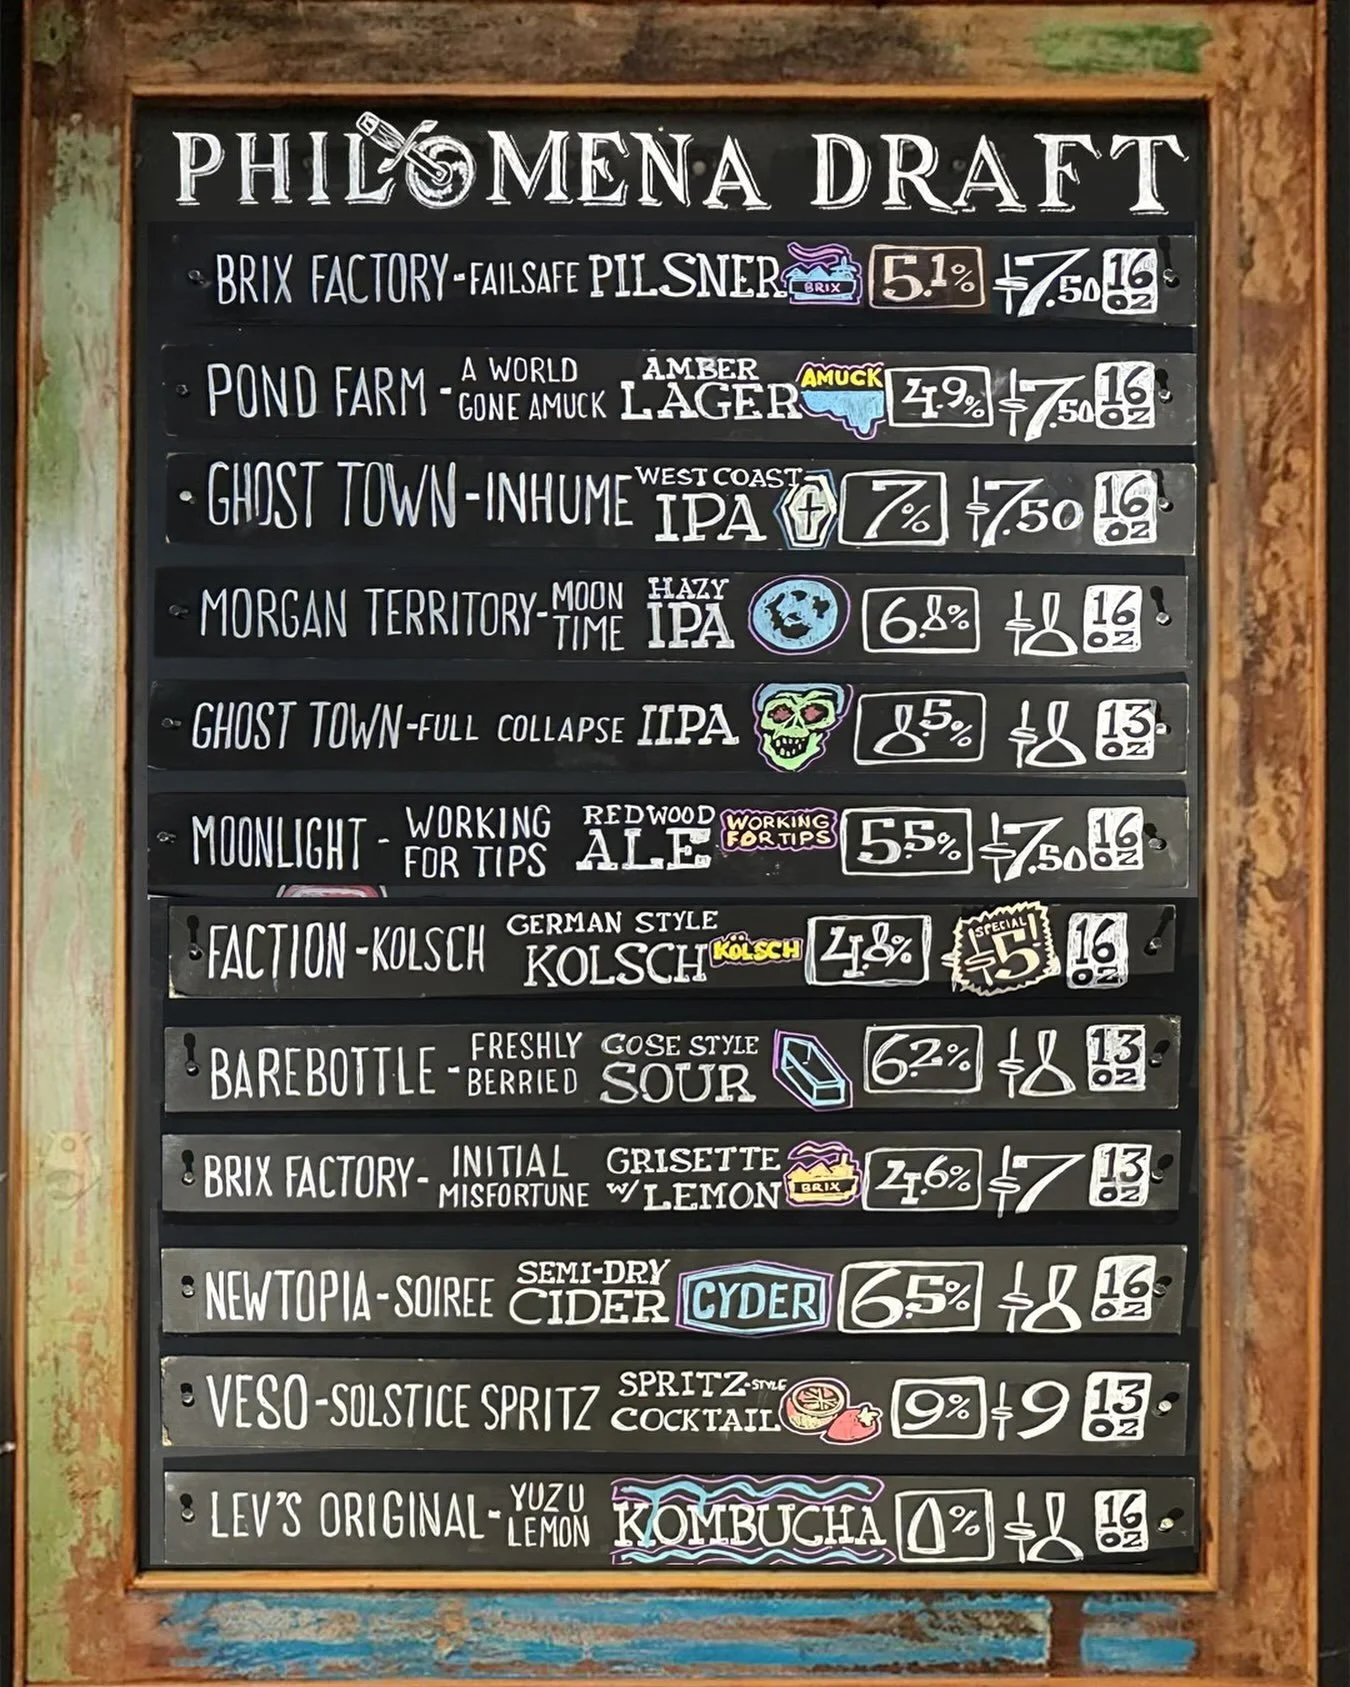 PHILOMENA DRAFT
BRIX FACTORY - FAILSAFE PILSNER BRIX 5.1% $7.50 16 OZ
POND FARM - A WORLD GONE AMUCK AMBER LAGER AMUCK 4.9% $7.50 16 OZ
GHOST TOWN - INHUME WEST COAST IPA 7% $7.50 16 OZ
MORGAN TERRITORY - MOON TIME HAZY IPA 6.8% $8 16 OZ
GHOST TOWN - FULL COLLAPSE IIPA 8.5% $8 13 OZ
MOONLIGHT - WORKING FOR TIPS REDWOOD ALE WORKING FOR TIPS 5.5% $7.50 16 OZ
FACTION - KOLSCH GERMAN STYLE KOLSCH KÖLSCH 4.8% SPECIAL! $5 16 OZ
BAREBOTTLE - FRESHLY BERRIED GOSE STYLE SOUR 6.2% $8 13 OZ
BRIX FACTORY - INITIAL MISFORTUNE GRISETTE W/ LEMON BRIX 4.6% $7 13 OZ
NEWTOPIA - SOIREE SEMI-DRY CIDER CYDER 6.5% $8 16 OZ
VESO - SOLSTICE SPRITZ SPRITZ-STYLE COCKTAIL 9% $9 13 OZ
LEV'S ORIGINAL - YUZU LEMON KOMBUCHA 0% $8 16 OZ